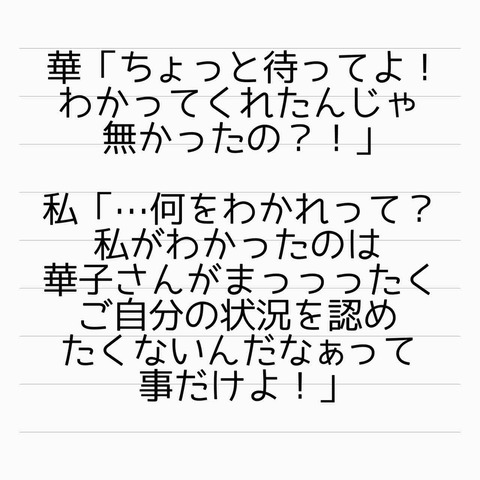 華「ちょっと待ってよ！
わかってくれたんじゃ
無かったの？！」
私「…何をわかれって？
私がわかったのは
華子さんがまっっったく
ご自分の状況を認め
たくないんだなぁって
事だけよ！」